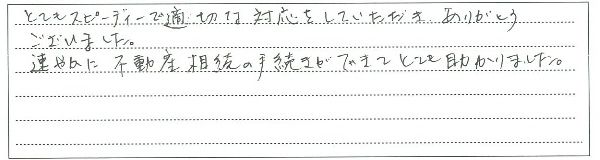 とてもスピーディーで適切な対応をしていただき ありがとう
ございました。
速やかに 不動産相続の手続きができてとても助かりました。